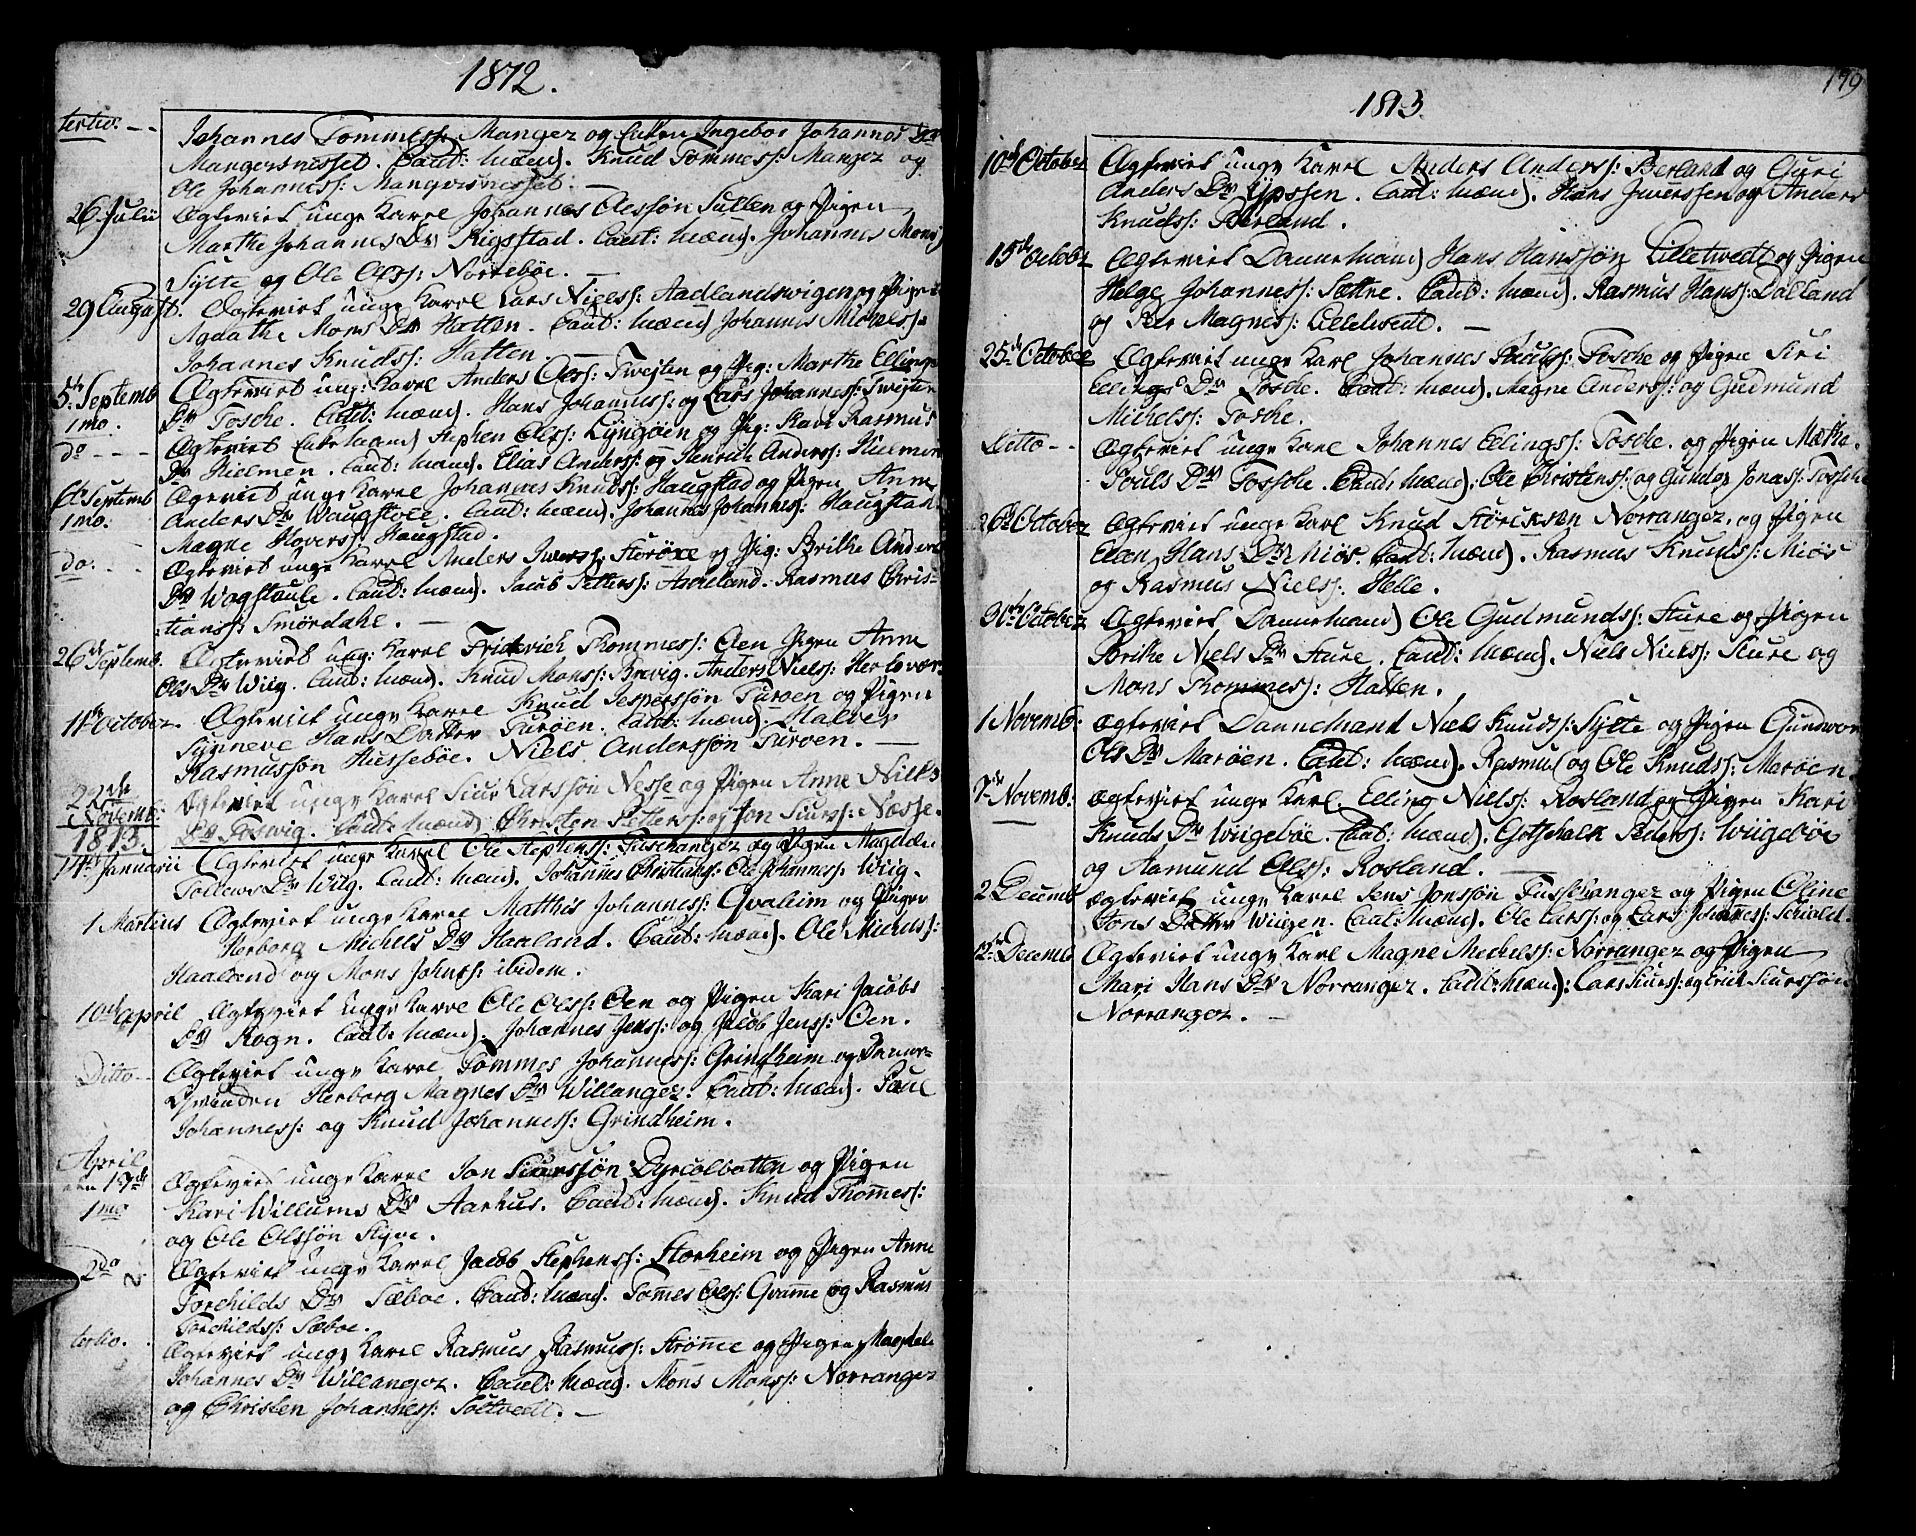 1812.
tertio. Johannes Tommess: Manger og Enken Ingebor Johannes Dr
Mangersnesset. Caut: Mænd. Knud Tommess: Manger og
Ole Johanness: Mangersnesset.
26 Julii Ægteviet unge Karel Johannes Olessøn Sulten og Pigen
Marthe Johannes Dr Rigsstad. Caut: Mænd. Johannes Mons
Sylte og Ole Olss: Nottebøe.
29 August. Ægteviet unge Karel Lars Nielss: Aadlandswigen og Pigen
Agathe Mons Dr Hatten. Caut: Mænd Johannes Michelss:
Johannes Knudss: Hatten.
5te Septemb Ægteviet ung: Karel Anders Olss: Twejten og Pig: Marthe Ellings
1mo. Dr Tosche. Caut: Mænd. Hans Johanness: og Lars Johanness: Twejten
do Ægteviet Enkemand Stephen Olss: Lyngøen og Pig: Kari Rasmus
Dr Hielmen. Caut: Mænd. Elias Anderss: og Henrik Anderss: Hielmen
Septemb Ægteviet unge Karel Johannes Knudss: Haugstad og Pigen Anne
1mo. Anders Dr Waugstole. Caut: Mænd. Johannes Johanness: Haugstad
Magne Hoverss: Haugstad.
do. Ægteviet unge Karel Anders Iverss: Storøxe og Pig: Brithe Anders
Dr Wogstoule. Caut: Mænd. Jacob Petterss: Aareland. Rasmus Chris-
tianss: Smørdahl.
26de Septemb. Ægteviet ung: Karel Friderich Thommess: Oen Pigen Anne
Ols Dr Wiig. Caut: Mænd. Knud Monss: Brevig. Anders Nielss: Herlevær
11te October. Ægteviet unge Karel Knud Jesperssøn Turøen og Pigen
Synneve Hans Datter Turøen. Caut: Mænd. Halver
Rasmussøn Hussebøe. Niels Anderssøn Turøen.
22de Ægteviet unge Karel Siur Larssøn Nesse og Pigen Anne Niels
Novemb: Dr Toswig. Caut: Mænd. Christen Petterss: og Jon Siurss: Næsse.
1813.
14de Januarii Ægteviet unge Karel Ole Stephenss: Fuschanger og Pigen Magdelen
Tollews Dr Wiig. Caut: Mænd. Johannes Christianss: Ole Johanness: Wiig.
1 Martius Ægteviet unge Karel Matthis Johanness: Qvalim og Pigen
Herborg Michels Dr Haaland. Caut: Mænd. Ole Michelss:
Haaland og Mons Johness: ibidem.
10de April Ægteviet unge Karel Ole Olss: Oen og Pigen Kari Jacobs
Dr Rogn. Caut: Mænd. Johannes Jenss: og Jacob Jenss: Oen.
Ditto Ægteviet unge Karel Tommes Johanness: Grindheim og Danne-
Qvinden Herborg Magnes Dr Willanger. Caut: Mænd. Poul
Johanness: og Knud Johanness: Grindheim.
April
den 19de Ægtevied unge Karel Jon Siurssøn Dyrcolbotten og Pigen
1mo Kari Willums Dr Aarhus. Caut: Mænd. Knud Thommess:
og Ole Olssøn Kyve.
2do Ægteviet unge Karel Jacob Stephenss: Storheim og Pigen Anne
Torchilds Dr Sæboe. Caut: Mænd. Tommes Olss: Qvamme og Rasmus
Torchildss: Sæboe.
tertio. Ægteviet unge Karel Rasmus Rasmuss: Strømme og Pigen Magdele
Johannes Dr Willanger. Caut: Mænd. Mons Monss: Norranger
og Christen Johanness: Toltvedt.
179
1813
10de October Ægteviet unge Karel Anders Anderss: Berland og Guri
Anders Dr Ypssen. Caut: Mænd. Hans Iwerssen og Anders
Knudss: Berland.
15de Octobr Ægteviet Dannemand Hans Hanssøn Lilletwedt og Pigen
Helge Johanness: Sættre. Caut: Mænd. Rasmus Hanss: Dalland
og Peer Magness: Lilletwedt.
25de October Ægteviet unge Karl Johannes Poulss: Tosche og Pigen Siri
Ellings Dr Tosche. Caut: Mænd. Magne Anderss: og Gudmund
Michelss: Tosche.
Ditto Ægteviet unge Karl Johannes Ellingss: Tosche. og Pigen Mætha.
Pouls Dr Tossche. Caut: Mænd. Ole Christenss: og Gunder Jonass: Tossche
October Ægteviet unge Karl Knud Størcksen Norranger. og Pigen
Elen Hans Dr Miøs. Caut: Mænd. Rasmus Knudss: Miøs
og Rasmus Nielss: Helle.
31te October Ægteviet Dannemand Ole Gudmundss: Sture og Pigen
Brithe Niels Dr Sture. Caut: Mænd. Niels Nielss: Sture og
Mons Thommess: Hatten.
1 Novemb: Ægteviet Dannemand Niels Knudss: Sylte og Pigen Gundwor
Ols Dr Marøen. Caut: Mænd. Rasmus og Ole Knudss: Marøen.
7de Novemb: Ægteviet unge Karl. Elling Nielss: Rosland og Pigen Kari
Knuds Dr Wiigebøe. Caut: Mænd. Gotschalk Pederss: Wiigebøe
og Aamund Olss: Rosland.
2 Decemb Ægteviet unge Karel Jens Jonssøn Fusschanger og Pigen Oline
Jons Datter Wiigen. Caut: Mænd. Ole Larss: og Lars Johanness: Schield-
12te Decemb Ægteviet unge Karl Magne Mechelss: Norranger og Pigen
Mari Hans Dr Norranger. Caut: Mænd: Lars Siurss: og Erick Siurssøn
Norranger.